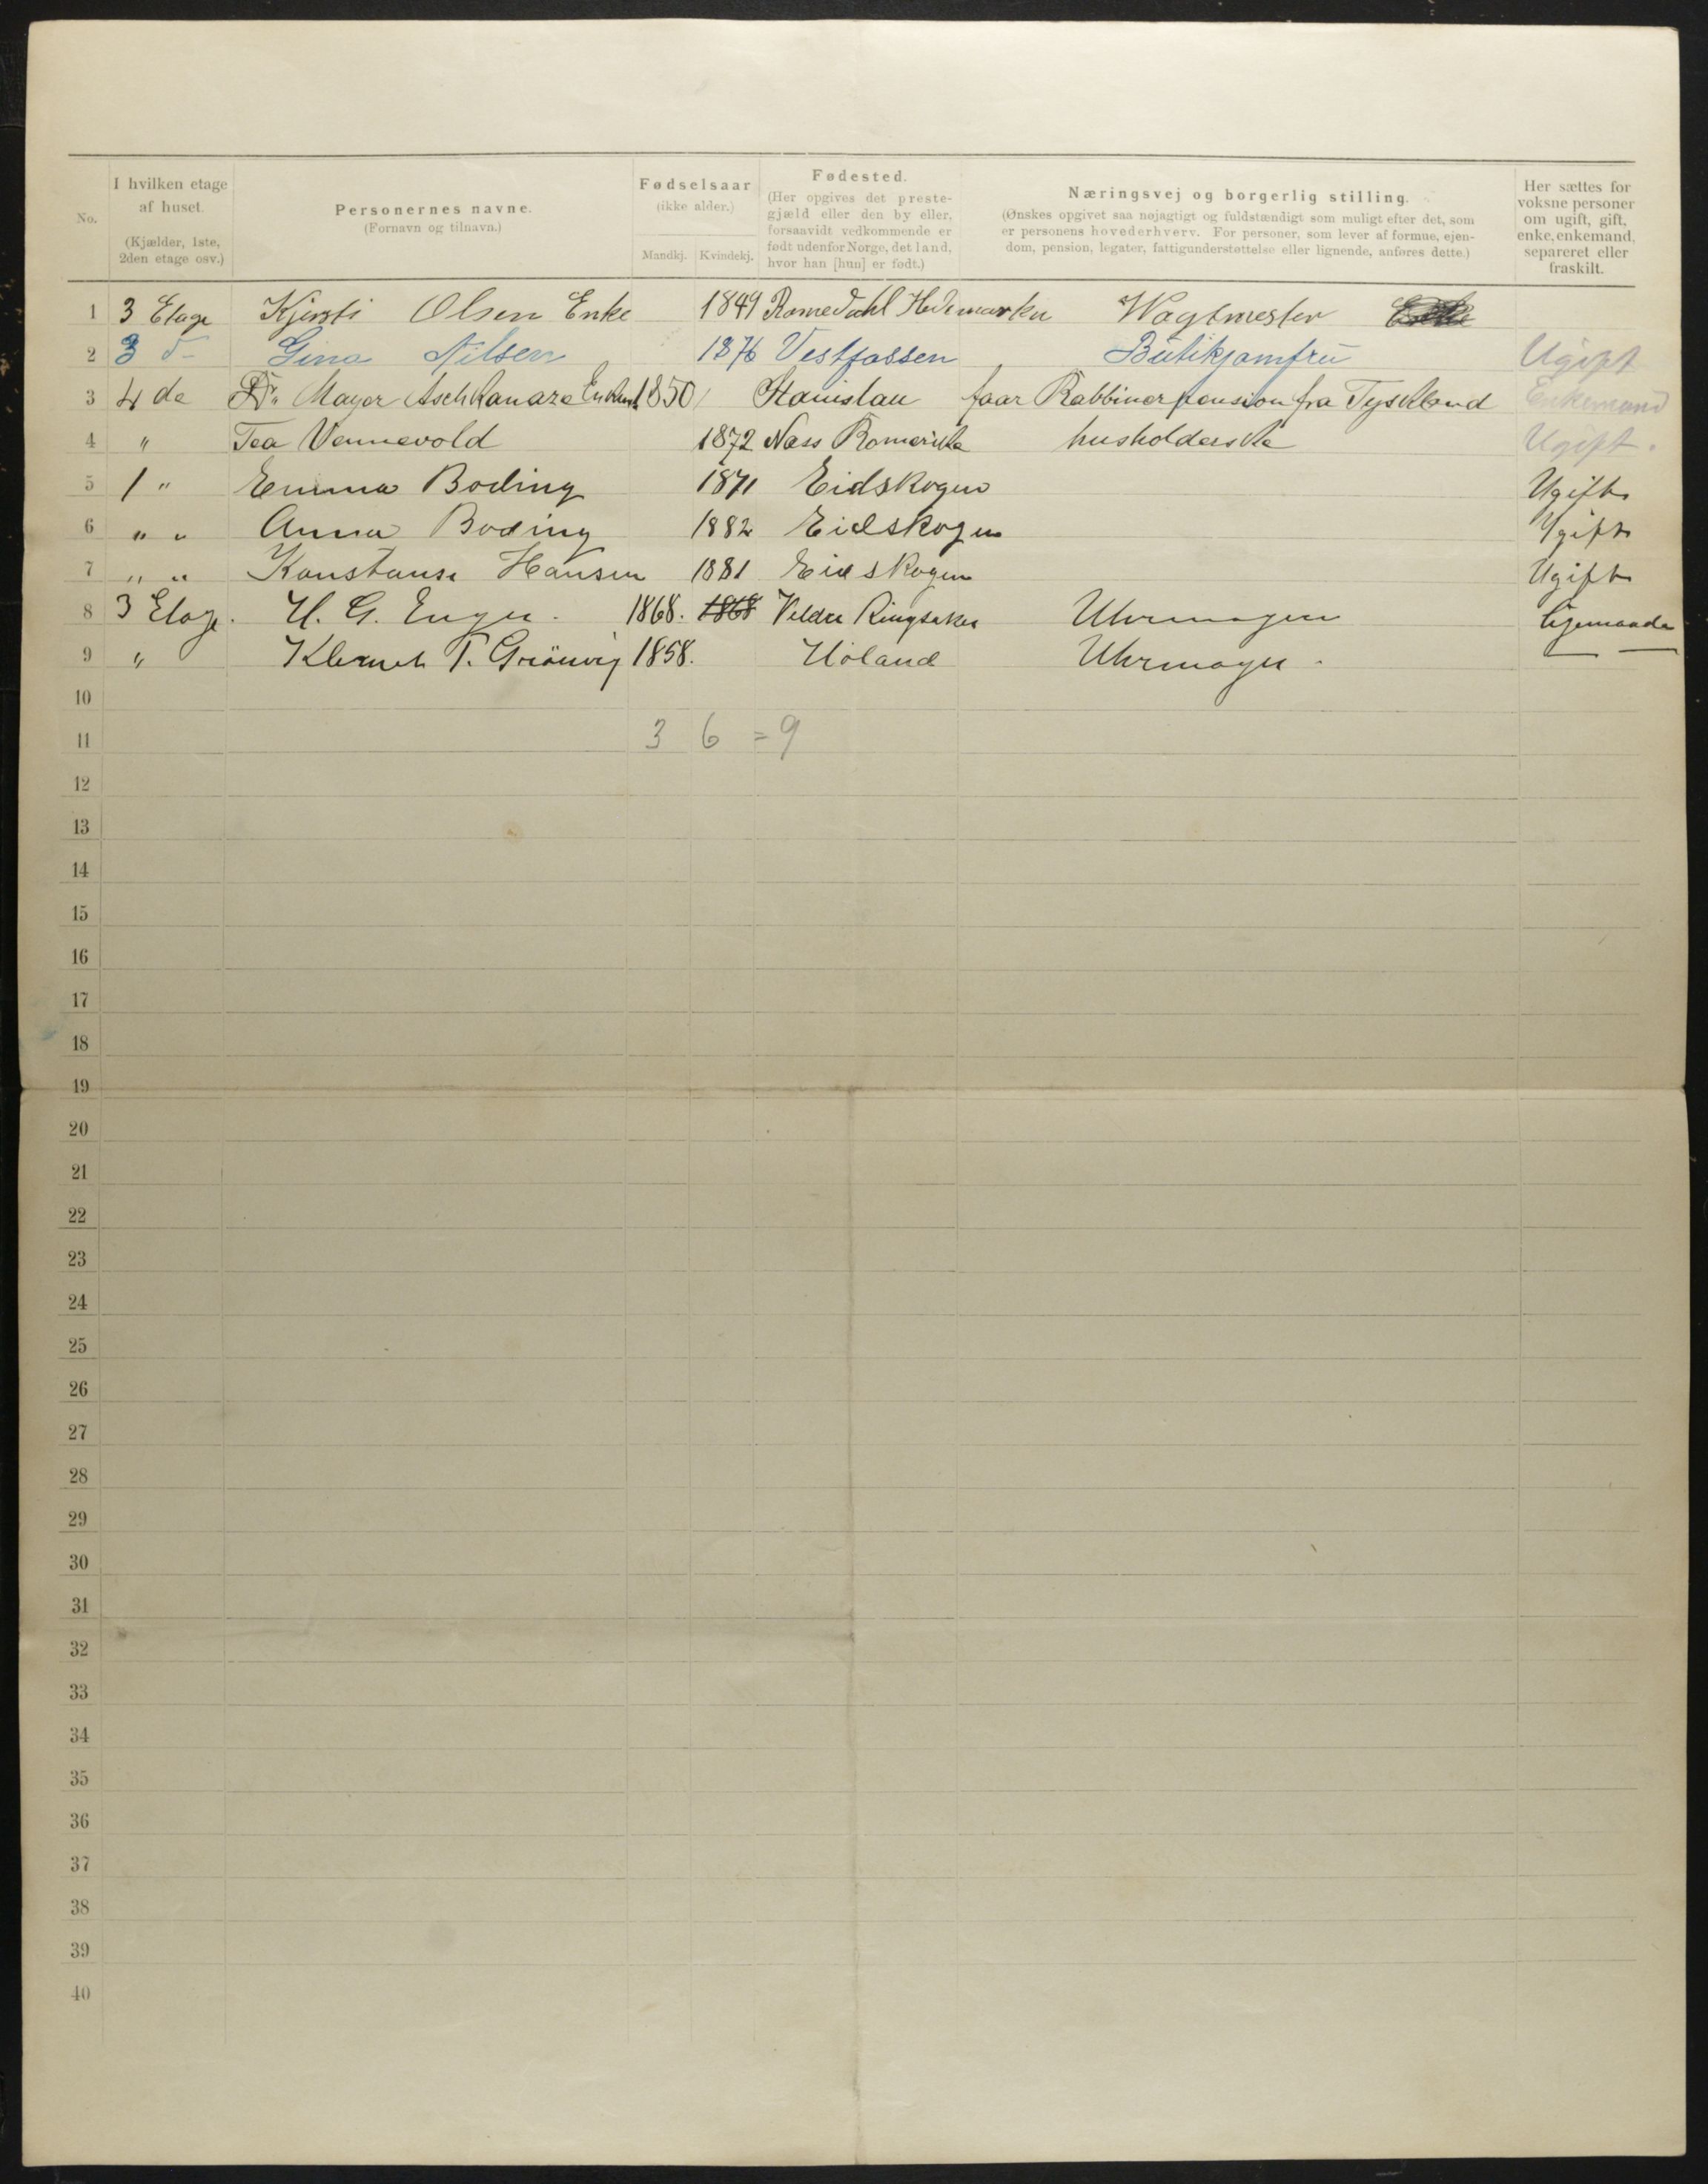 No.
I hvilken etage
af huset.
(Kjælder, 1ste,
2den etage osv.)
Personernes navne.
(Fornavn og tilnavn.)
Fødselsaar
(ikke alder.)
Mandkj. Kvindekj.
Fødested.
(Her opgives det preste-
gjæld eller den by eller,
forsaavidt vedkommende er
født udenfor Norge, det land,
hvor han [hun] er født.)
Næringsvej og borgerlig stilling.
(Ønskes opgivet saa nøjagtigt og fuldstændigt som muligt efter det, som
er personens hovederhverv. For personer, som lever af formue, ejen-
dom, pension, legater, fattigunderstøttelse eller lignende, anføres dette.)
Her sættes for
voksne personer
om ugift, gift,
enke, enkemand,
separeret eller
fraskilt.
1 3 Etage Kjersti Olsen Enke 1849 Romedahl Hedemarken Wagtmester Enke
2 3 d- Gina Nilsen 1876 Vestfossen Butikjomfru Ugift
3 4 de Dr. Mayer Aschkanaze 1850 Stanislau faar Rabbinerpension fra Tyskland Enkemand
4 " Tea Vennevold 1872 Næss Romerike husholderske Ugift.
5 1 " Emma Boding 1871 Eidskogen Ugift
6 " " Anna Boding 1882 Eidskogen Ugift
7 " " Konstanse Hansen 1881 Eidskogen Ugift
8 3 Etage. H. G. Enger. 1868. 1868 Veldre Ringsaker Uhrmager
9 " Klemet T. Grönvig 1858. Höland Uhrmager.
10
11 3 6 = 9
12
13
14
15
16
17
18
19
20
21
22
23
24
25
26
27
28
29
30
31
32
33
34
35
36
37
38
39
40